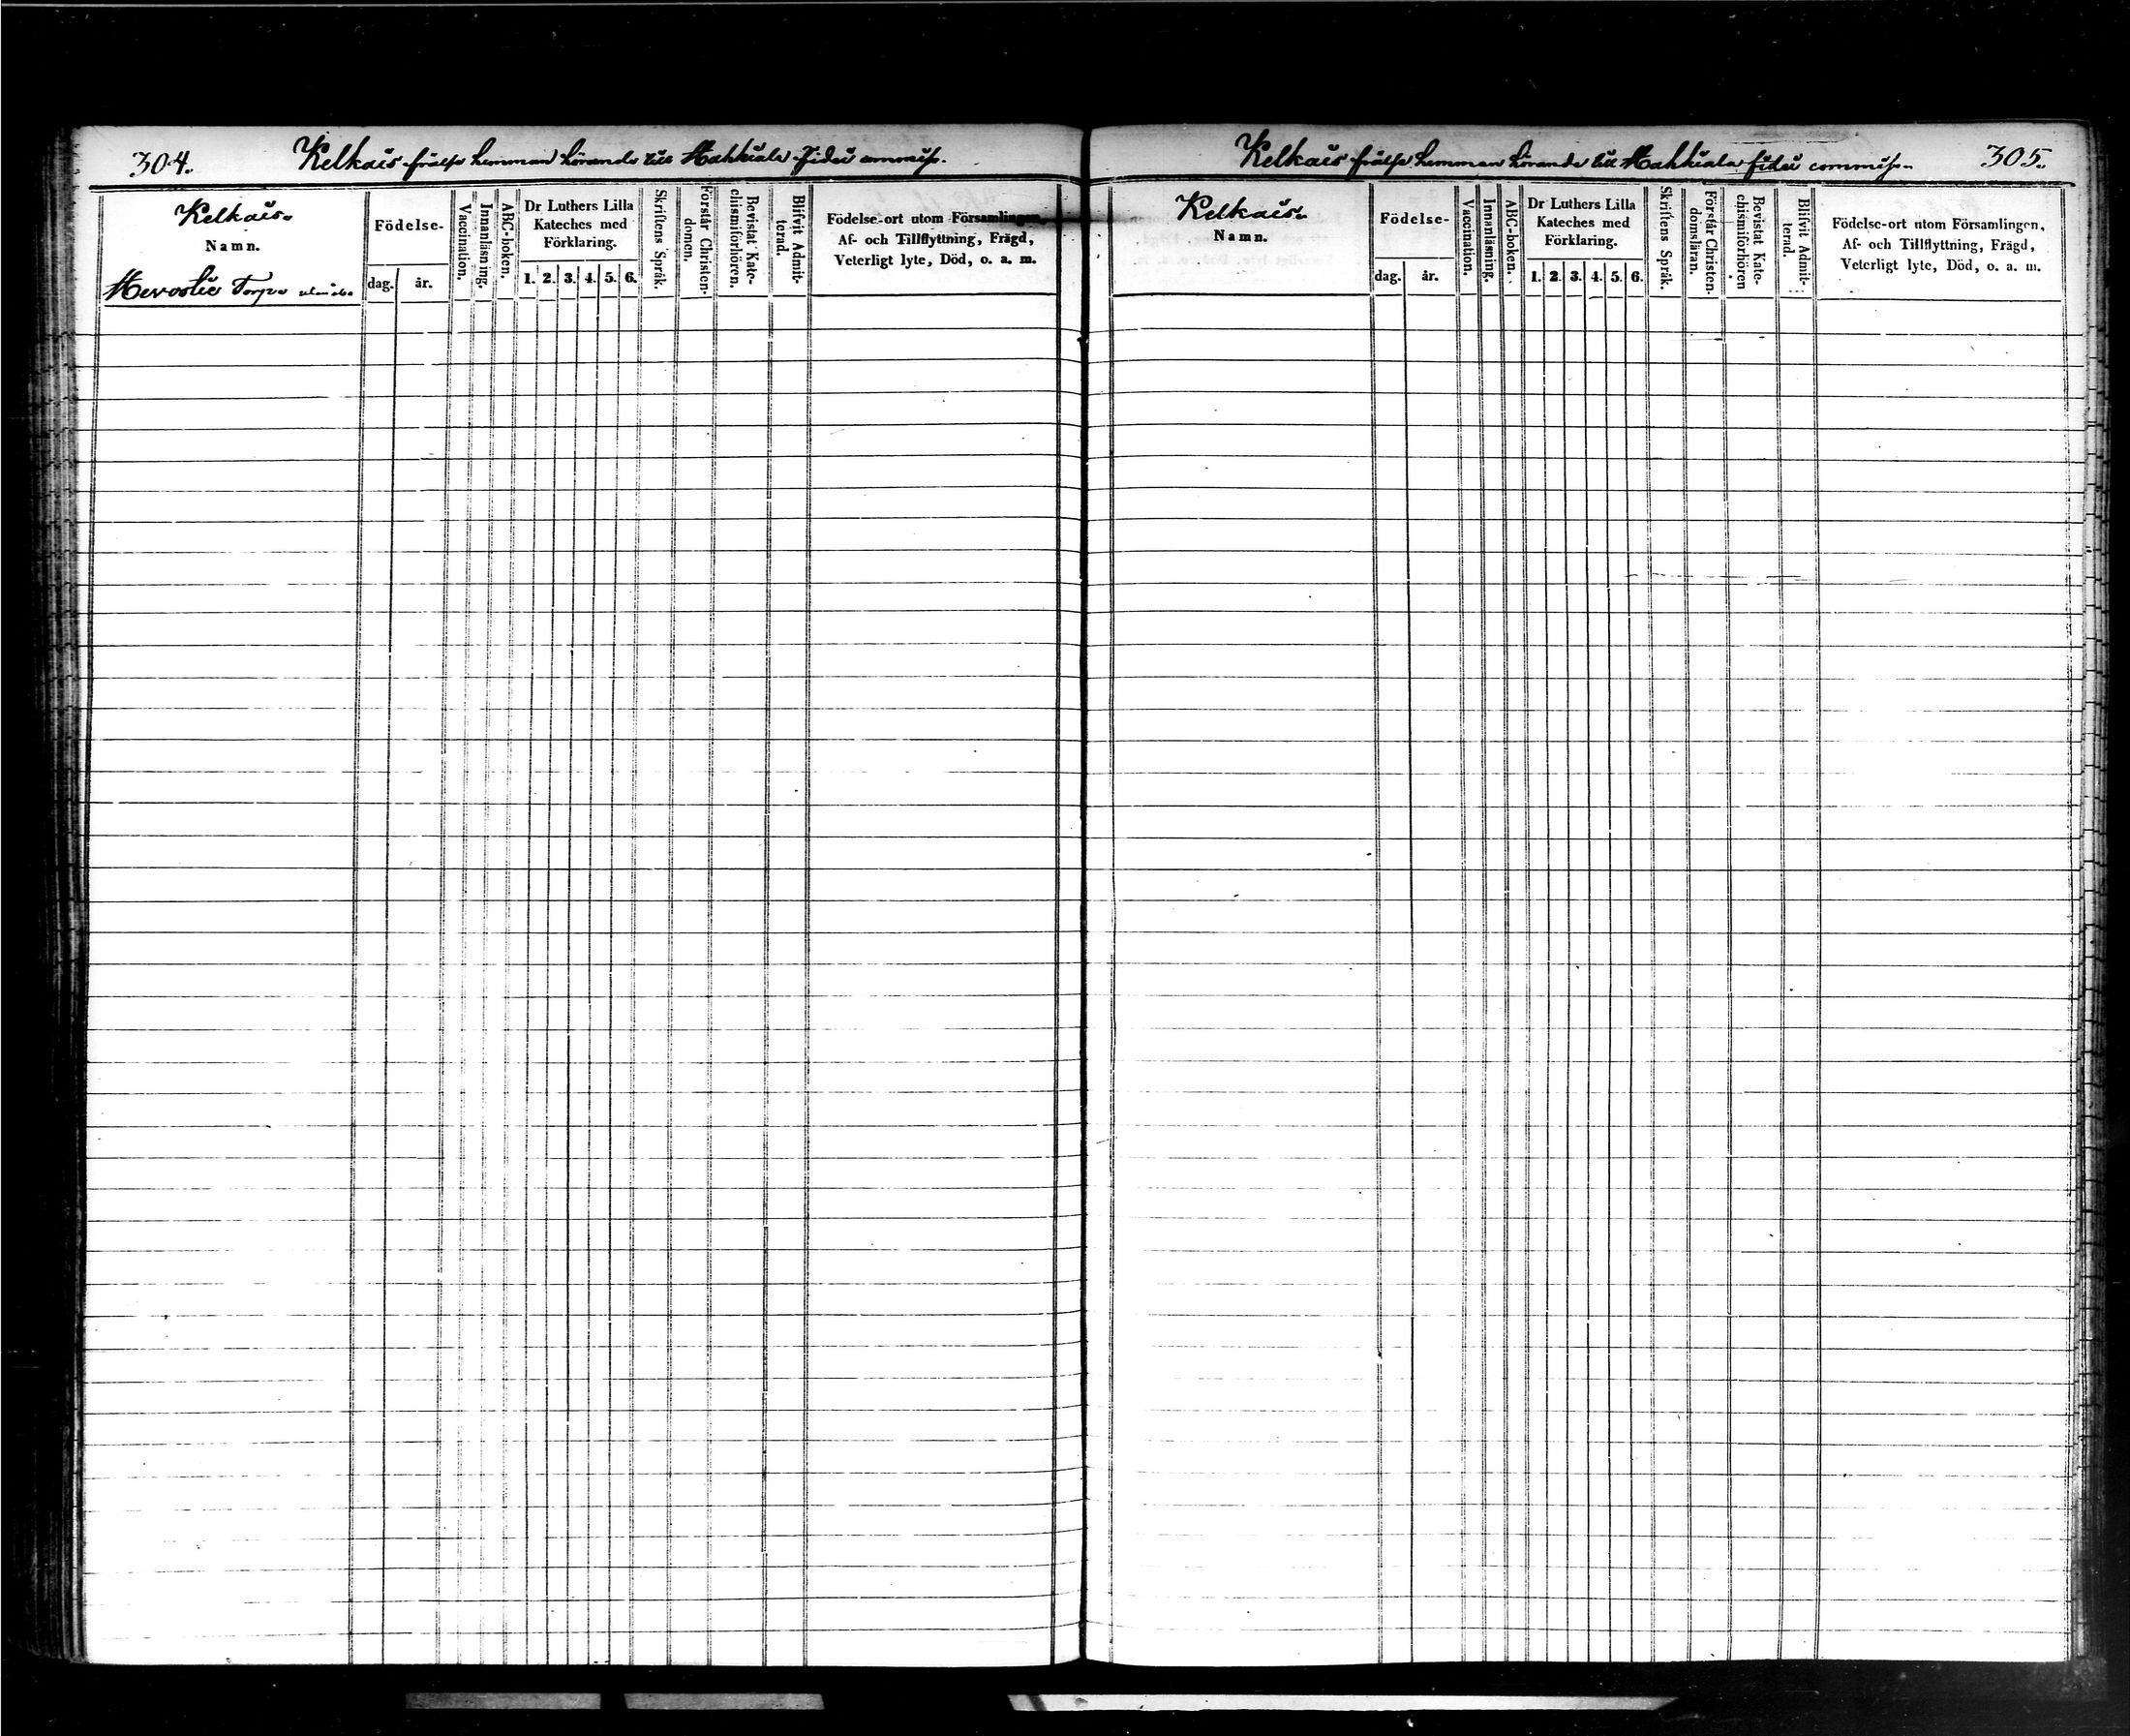 304. Kelkais frälse hemman hörande till Hahkiala Fidei commiss.
Kelkais.
Namn.
Hevoslie Torpe
Födelse-
dag. år.
Vaccination.
Innanläsning.
ABC-boken.
Dr Luthers Lilla
Kateches med
Förklaring.
1. 2. 3. 4. 5. 6.
Skriftens Språk.
Förstår Christen-
domen.
Bevistat Kate-
chismiförhören.
Blifvit Admit-
terad.
Födelse-ort utom Församlingen,
Af- och Tillflyttning, Frägd,
Veterligt lyte, Död, o. a. m.
Kelkais frälse hemman hörande till Hahkiala fidei commiss. 305.
Kelkais.
Namn.
Födelse-
dag. år.
Vaccination.
Innanläsning.
ABC-boken.
Dr Luthers Lilla
Kateches med
Förklaring.
1. 2. 3. 4. 5. 6.
Skriftens Språk.
Förstår Christen-
domsläran.
Bevistat Kate-
chismiförhören
Blifvit Admit-
terad.
Födelse-ort utom Församlingen,
Af- och Tillflyttning, Frägd,
Veterligt lyte, Död, o. a. m.